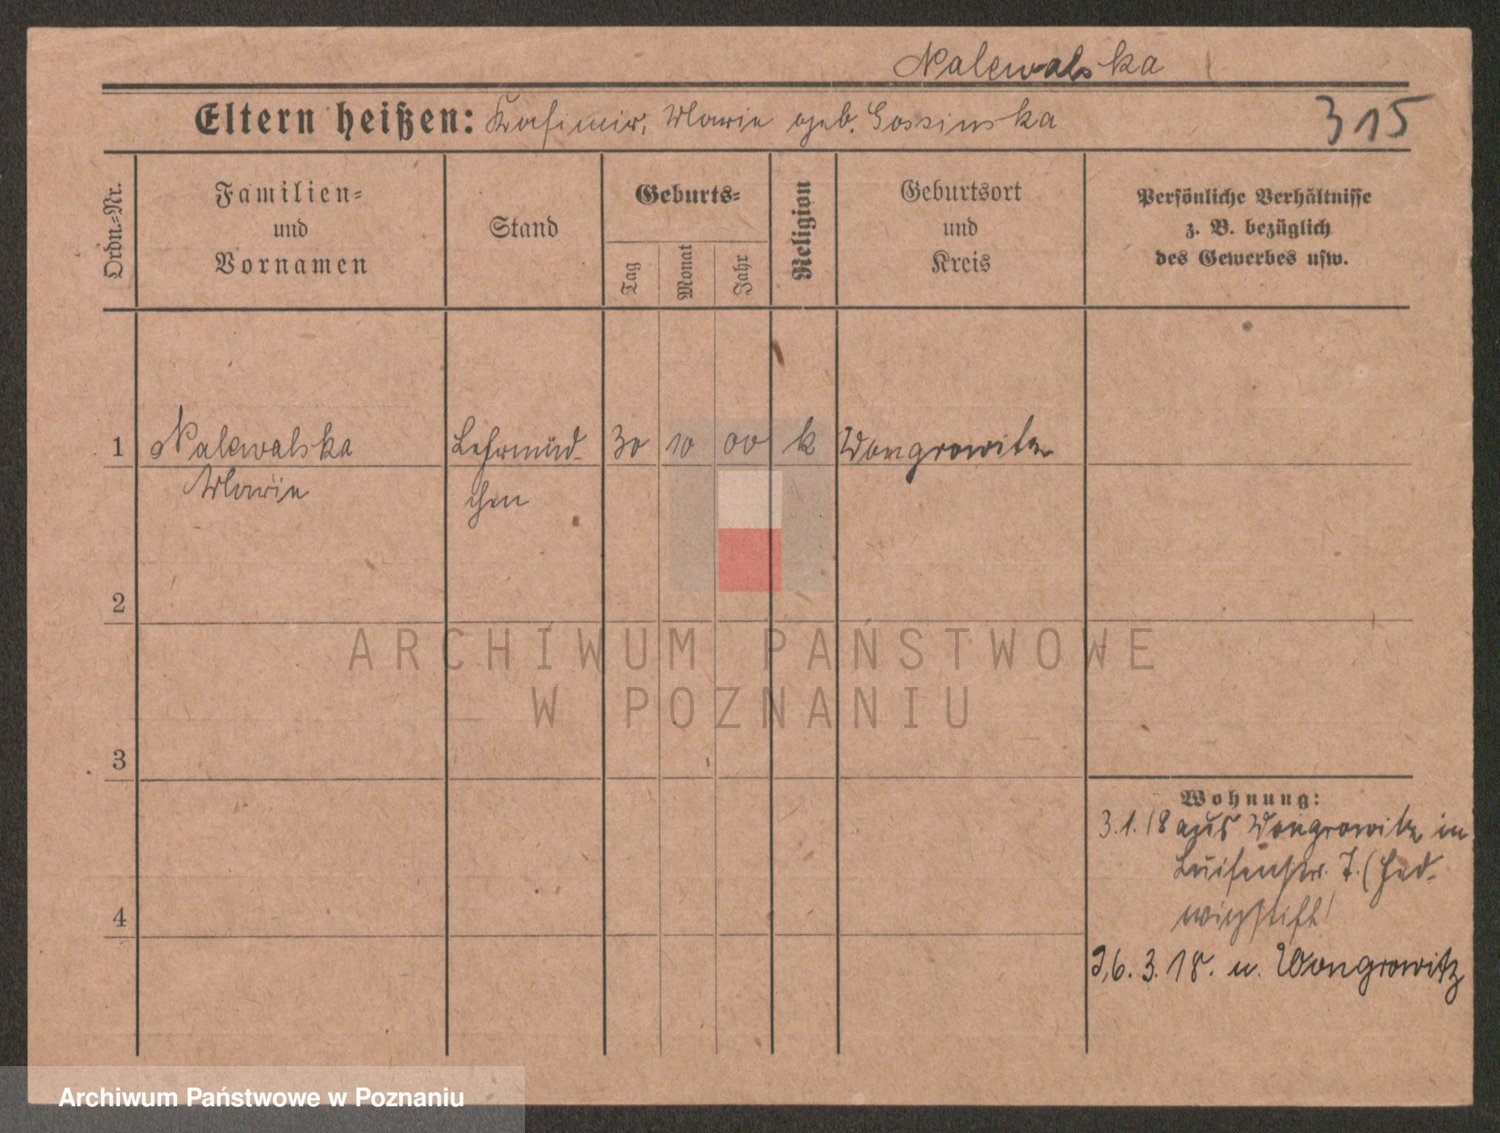 Nalewalska
Eltern heißen: Kasimir, Marie geb. Gossinska
315
Ordn.=Nr.
Familien=
und
Vornamen
Stand
Geburts=
Tag
Monat
Jahr
Religion
Geburtsort
und
Kreis
Persönliche Verhältnisse
z. B. bezüglich
des Gewerbes usw.
1 Nalewalska Lehrmäd- 30 10 00 k Wongrowitz
Marie chen
2
3
4
Wohnung:
3.1.18 aus Wongrowitz in
Luisenstr. 7. (Hed-
wigstift)
26.3.18. n. Wongrowitz
ARCHIWUM PAŃSTWOWE
W POZNANIU
Archiwum Państwowe w Poznaniu